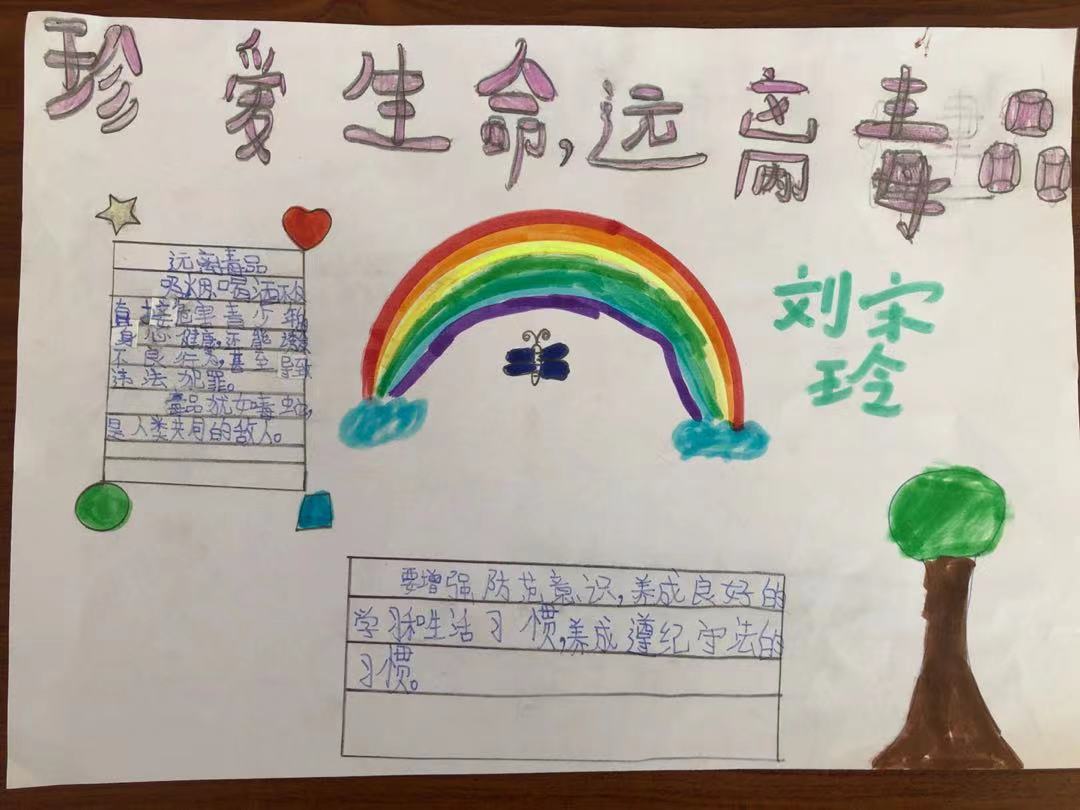 珍爱生命,远离毒品
远离毒品
吸烟喝酒不仅
直接危害青少年
身心健康,还能诱发
不良行为,甚至导致
违法犯罪。
毒品犹如毒蛇,
是人类共同的敌人。
刘宋
玲
要增强防范意识,养成良好的
学习和生活习惯,养成遵纪守法的
习惯。